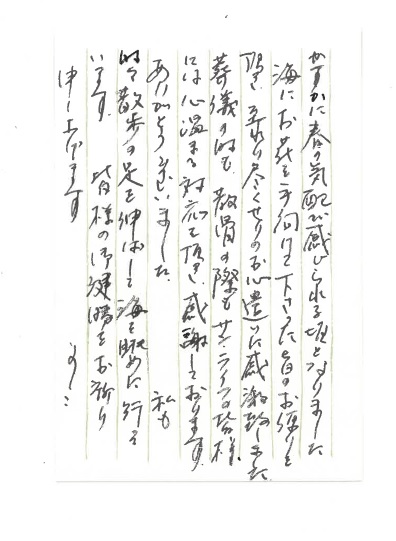 かすかに春の気配が感じられる頃となりました
海にお花を手向けて下さった旨のお便りを
頂き、至れり尽くせりのお心遣いに感激致しました
葬儀の時も、散骨の際もサンライフの皆様
には心温まる対応を頂き、感謝しております。
ありがとう御座いました。 私も
時々散歩の足を伸ばして海を眺めに行って
います。 皆様の御健勝をお祈り
申し上げます